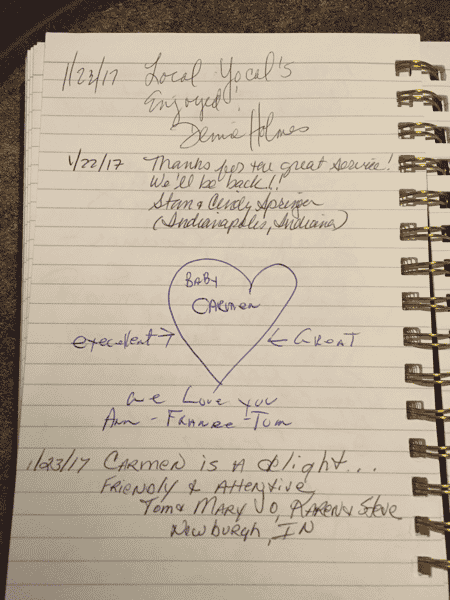 1/23/17 Local Yocal's
Enjoyed!
Holmes
1/22/17 Thanks for the great service!
We'll be back!!
Stan & Cindy Springer
(Indianapolis, Indiana)
BABY
CARMEN
execellent → ← GREAT
We Love you
Ann - France - Tom
1/23/17 CARMEN is A delight...
FRIENDLY & Attentive
Tom & MARY JO, KAREN & Steve
Newburgh, IN